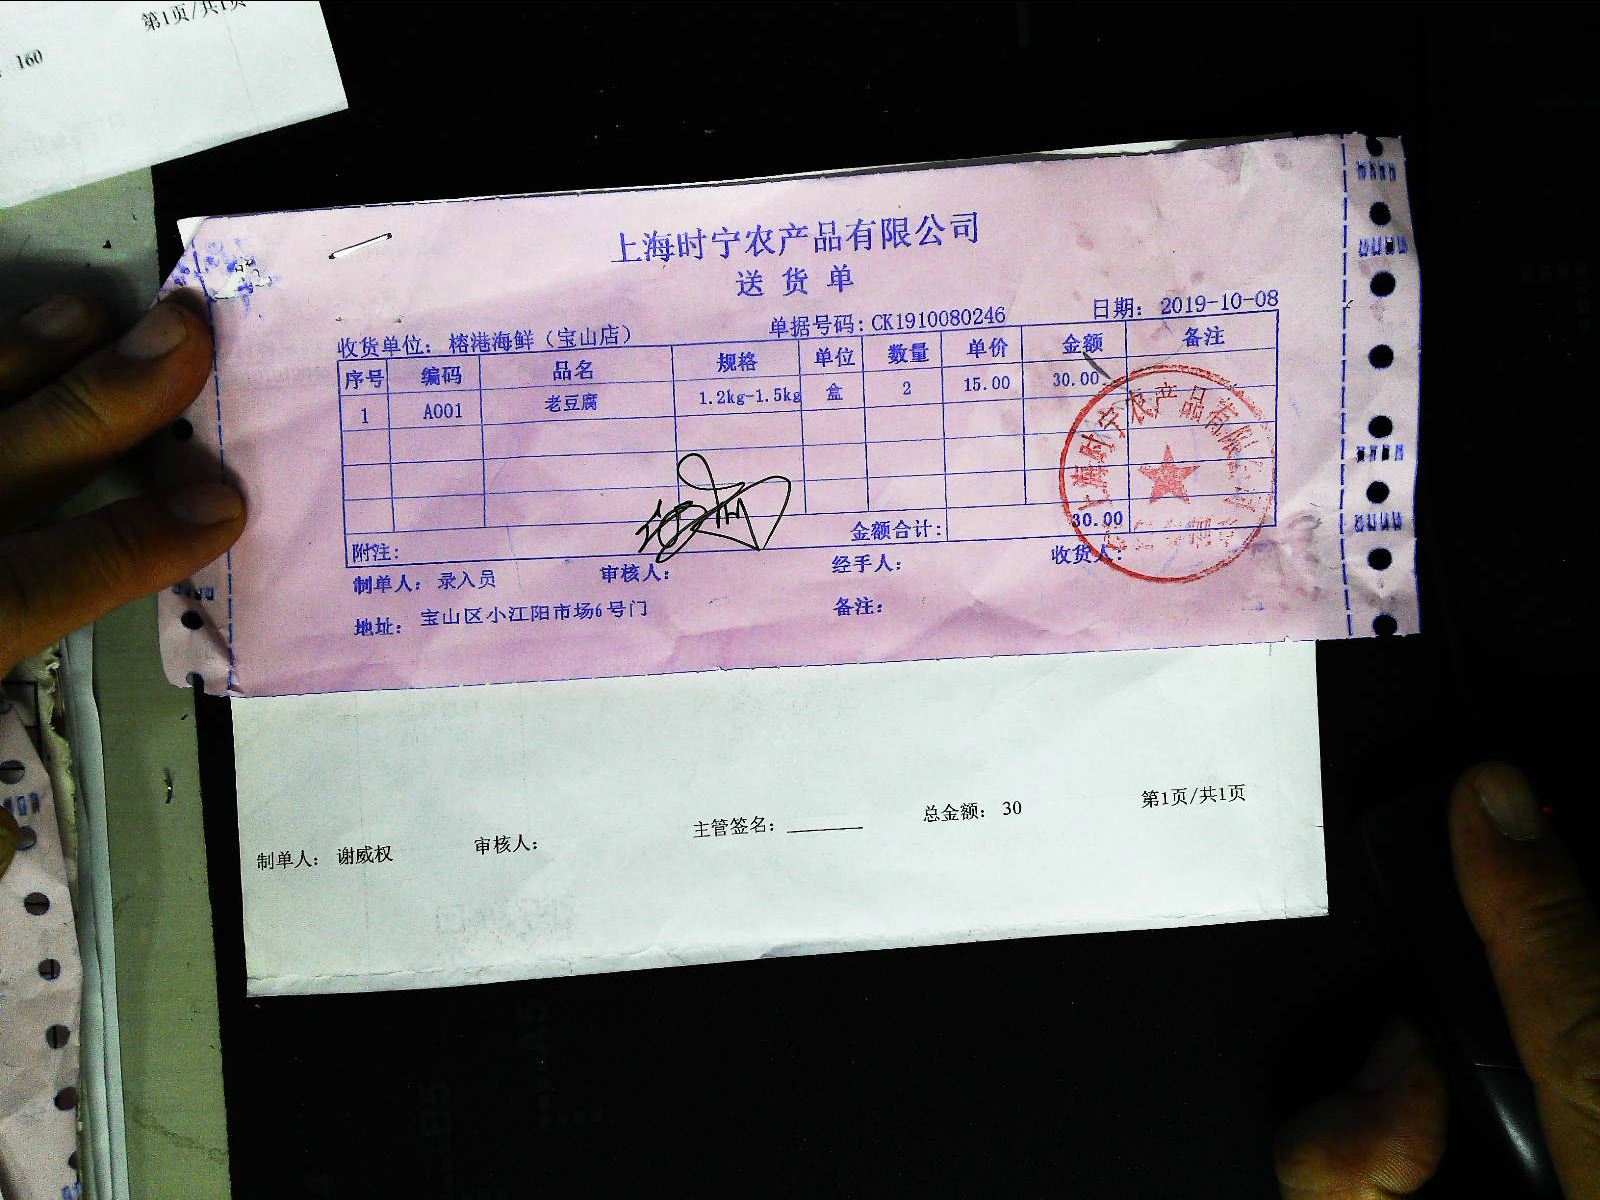 第1页/共1页
160
上海时宁农产品有限公司
送货单
收货单位：榕港海鲜（宝山店） 单据号码：CK1910080246 日期：2019-10-08
序号 编码 品名 规格 单位 数量 单价 金额 备注
1 A001 老豆腐 1.2kg-1.5kg 盒 2 15.00 30.00
金额合计： 30.00
附注：
制单人：录入员 审核人： 经手人： 收货人：
地址：宝山区小江阳市场6号门 备注：
上海时宁农产品有限公司
制单人：谢威权 审核人： 主管签名：______ 总金额：30 第1页/共1页